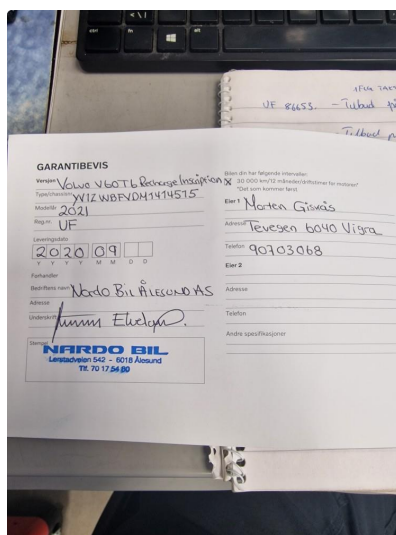 UF 86653. - Tilbud på
GARANTIBEVIS
Versjon Volvo V60 T6 Recharge Inscription
Type/chassisnr. YV1ZWBFVDM1414515
Modellår 2021
Reg.nr. UF
Leveringsdato
2020 09
Y Y Y Y M M D D
Forhandler
Bedriftens navn Nardo Bil Ålesund AS
Adresse
Underskrift
Stempel
NARDO BIL
Lerstadveien 542 - 6018 Ålesund
Tlf. 70 17 54 80
Bilen din har følgende intervaller:
X 30 000 km/12 måneder/driftstimer for motoren*
*Det som kommer først.
Eier 1 Morten Giskås
Adresse Tevegen 6040 Vigra
Telefon 90703068
Eier 2
Adresse
Telefon
Andre spesifikasjoner